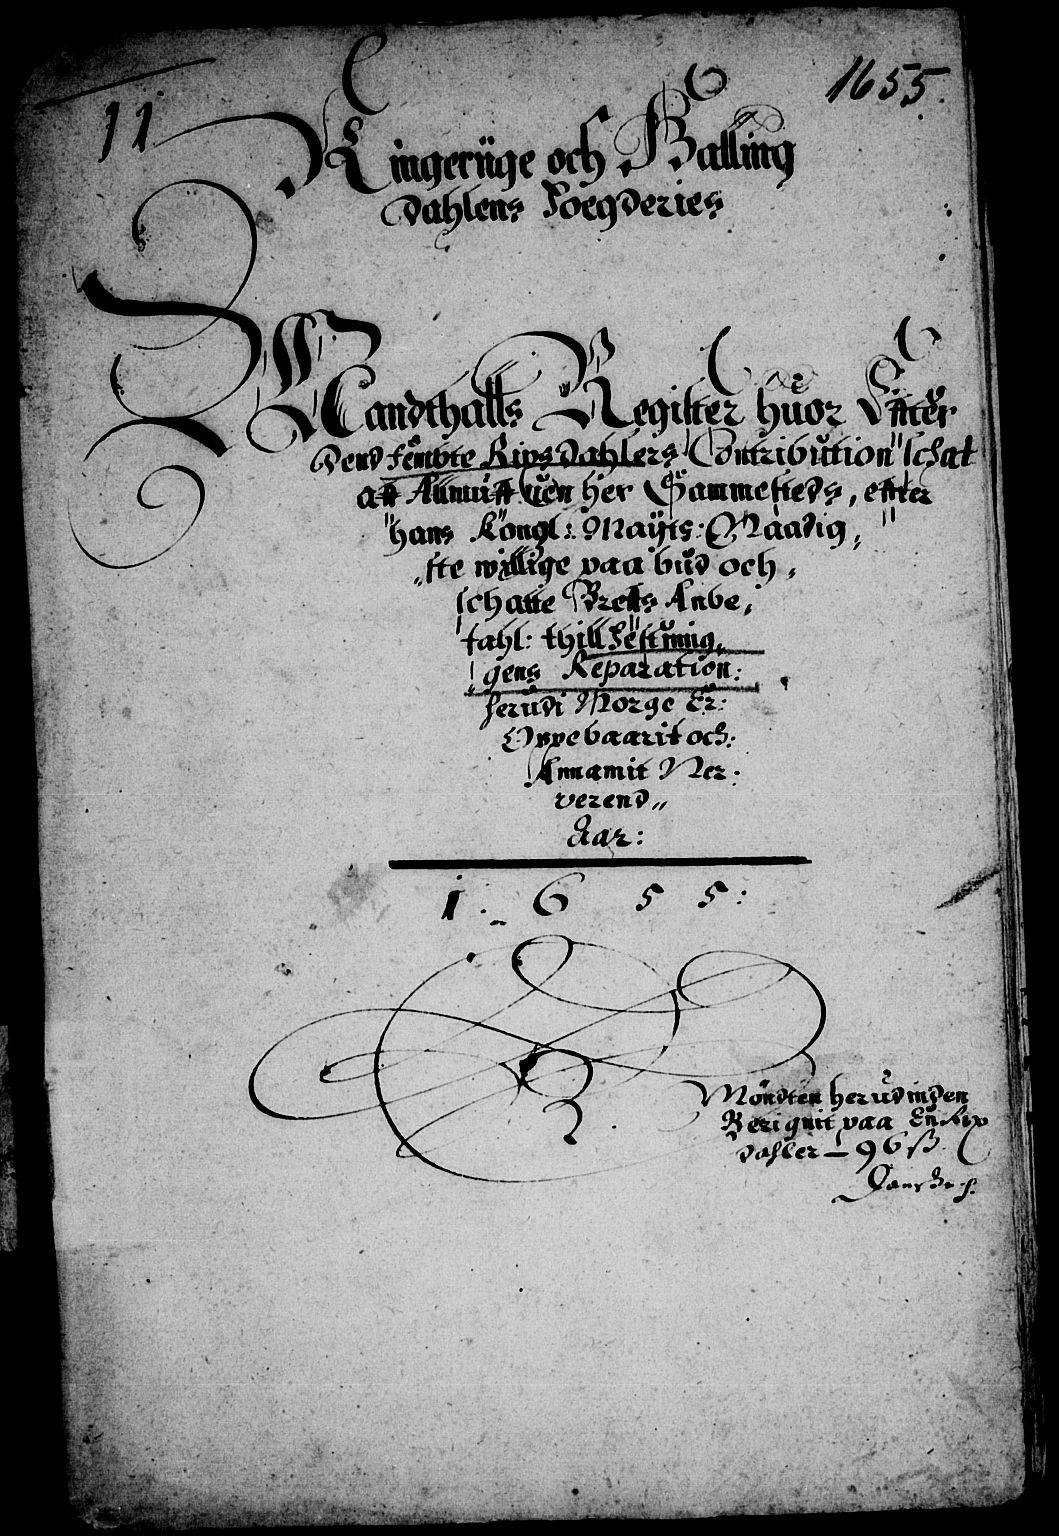 1655.
11
Ringeriige och Halling
dahlens Foegderies
Mandthalls Register huor Effter
dend fembte Rixsdahlers Contribution schat
aff Allmuffuen her Sammesteds, effter
hans Kongl: Maÿts: Naadig,
ste willige paabud och,
schatte Breffs Anbe,
fahl: thill Festning,
gens Reparation:
herudi Norge Er:
Oppebaarit och:
Annamit Ner:
verend
Aar:
1 6 5 5:
Møndten herudinden
Berignit paa En Rix
dahler — 96 ß
Danske